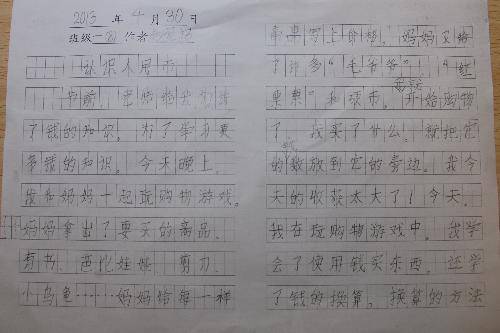 2013 年 4 月 30 日
班级 一 作者
认识人民币
前，老师给我们讲
了钱的知识。为了学习更
多钱的知识。今天晚上，
我和妈妈一起玩购物游戏。
妈妈拿出了要买的商品，
有书、芭比娃娃、剪刀、
小乌龟……妈妈给每一样
商品写上价格。妈妈又给
了许多“毛爷爷”！“红
票票”和硬币。开始购物
了，我买了什么，就把它
的数放到它的旁边。我今
天的收获太大了！今天，
我在玩购物游戏中，我学
会了使用钱买东西，还学
了钱的换算，换算的方法